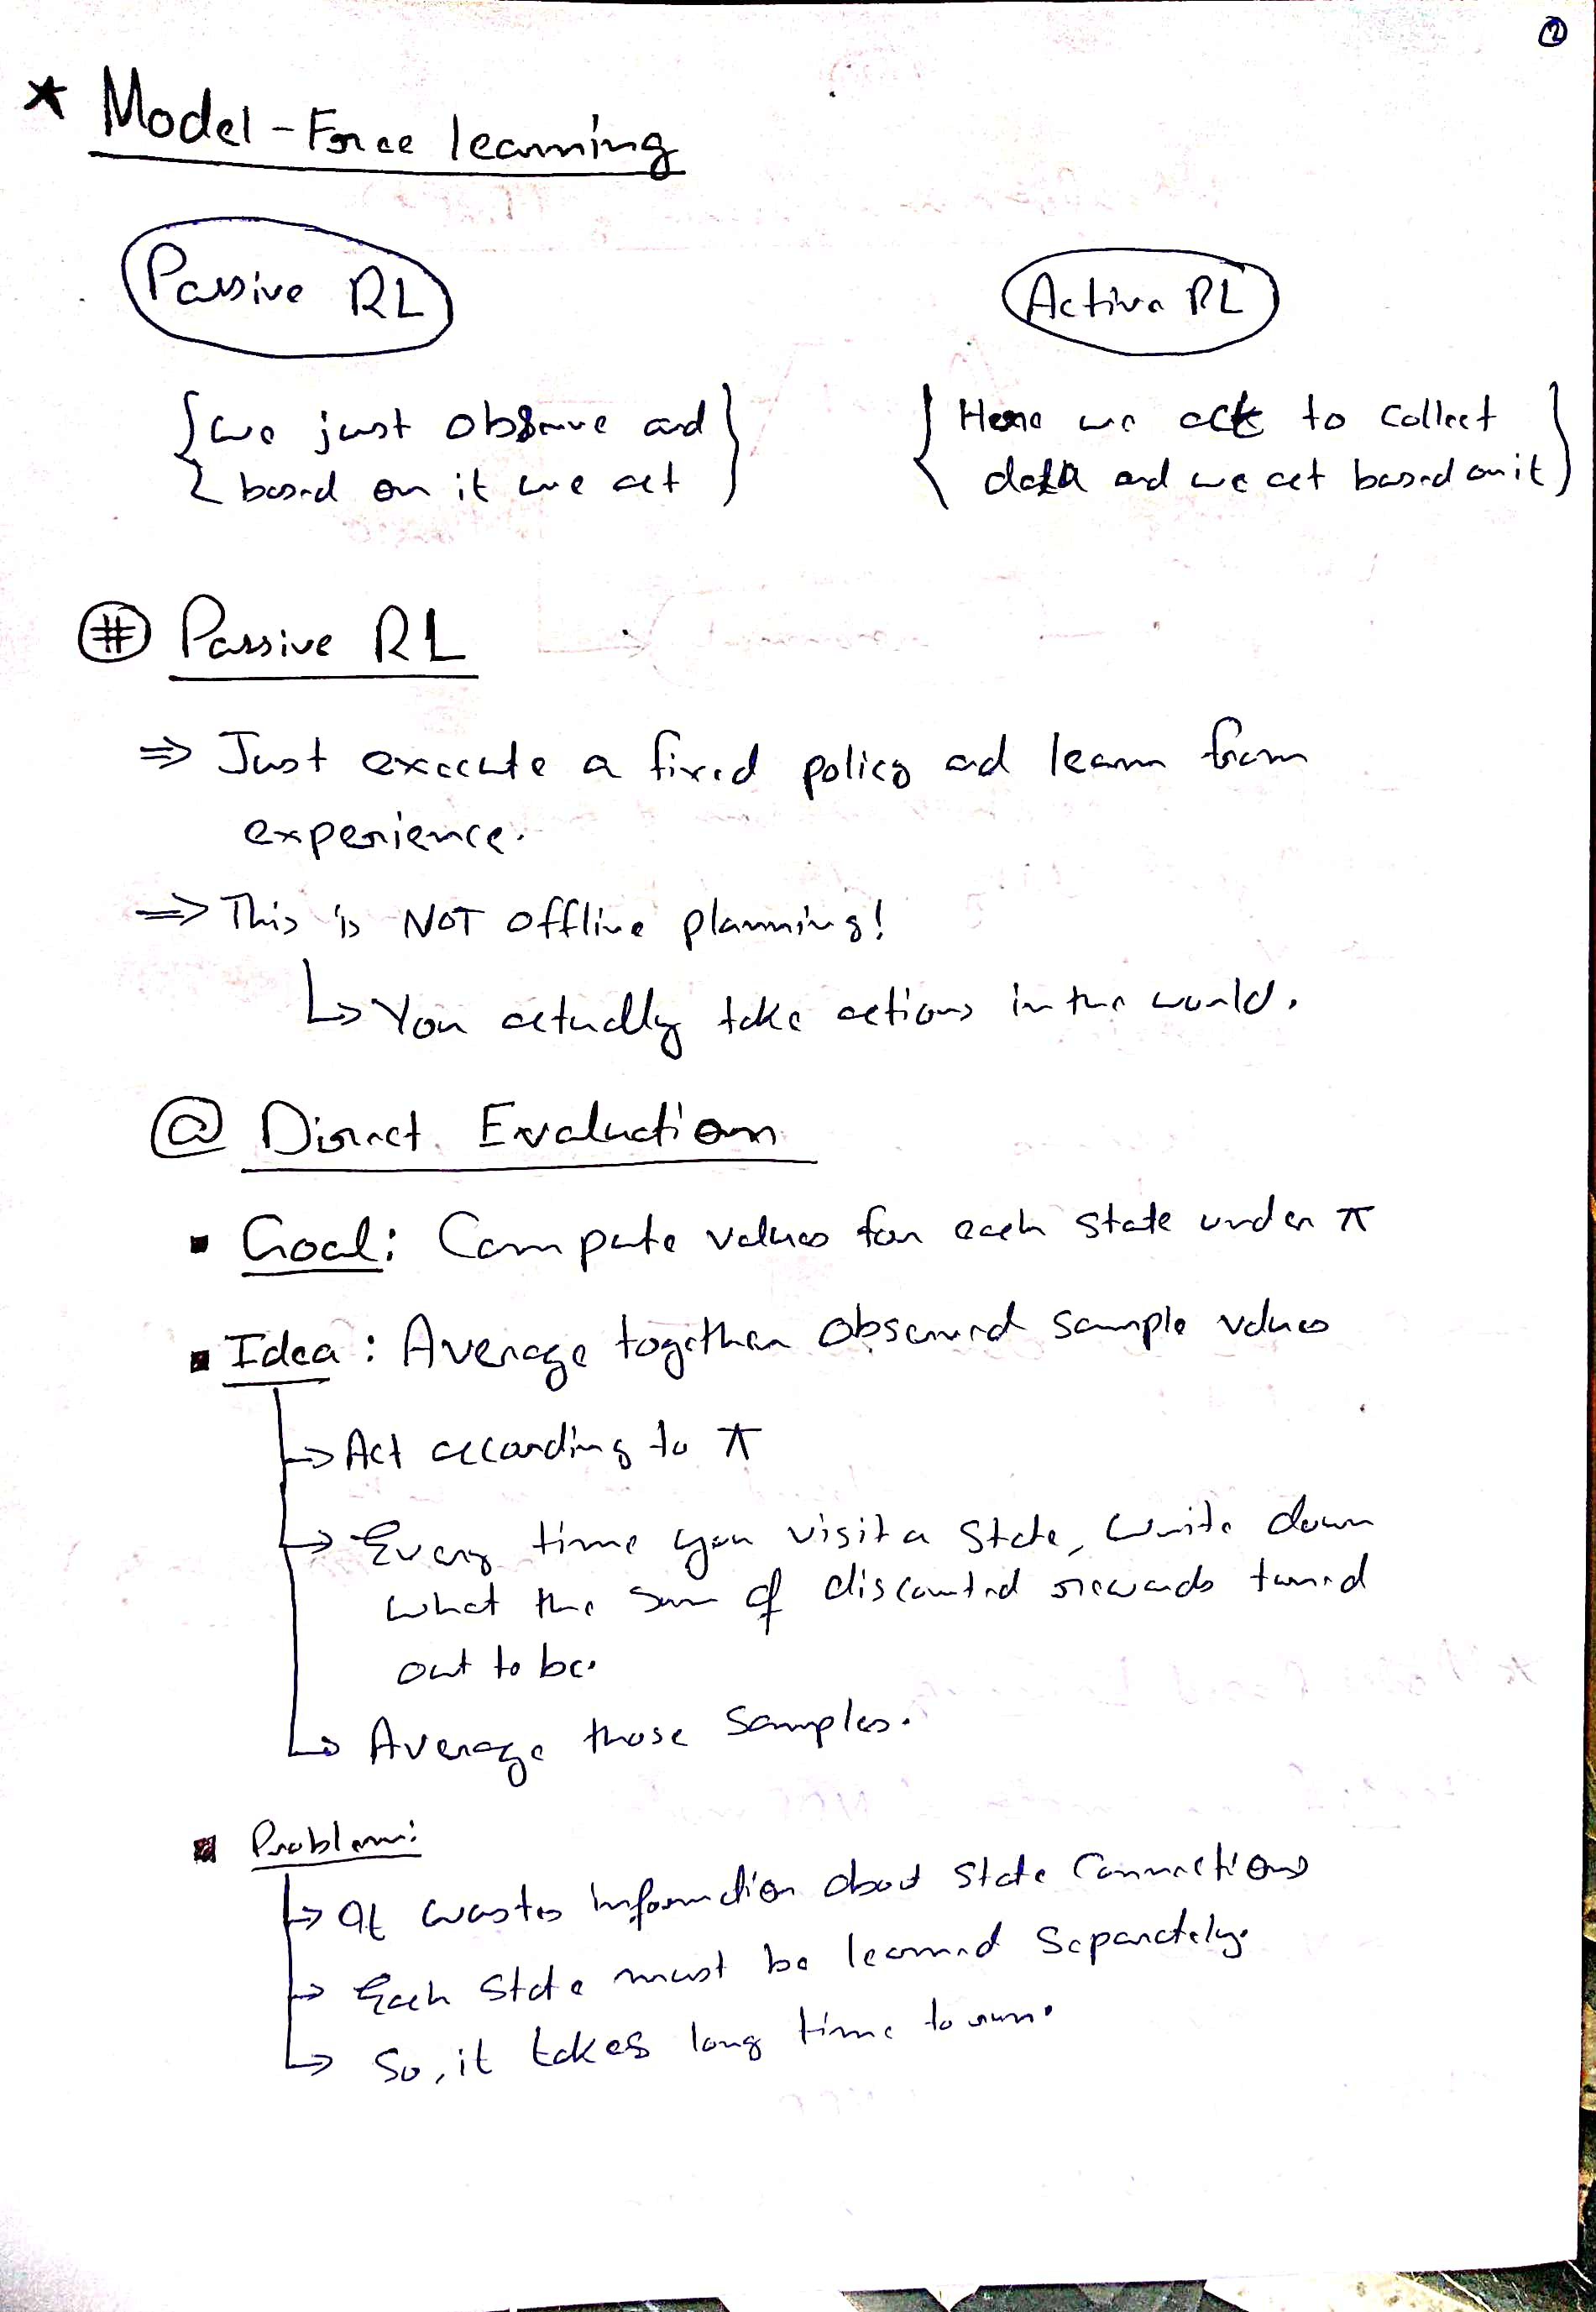 ②
* Model-Free learning
Passive RL
Active RL
{we just observe and
based on it we act}
{Here we act to collect
data and we act based on it}
# Passive RL
⇒ Just execute a fixed policy ad learn from
experience.
⇒ This is NOT offline planning!
↳ You actually take actions in the world.
@ Direct Evaluation
▪ Goal: Compute values for each state under π
▪ Idea: Average together observed sample values
→ Act according to π
→ Every time you visit a state, write down
what the sum of discounted rewards turned
out to be.
↳ Average those samples.
▪ Problem:
→ It wastes information about state connections
→ Each state must be learned separately.
↳ So, it takes long time to run.